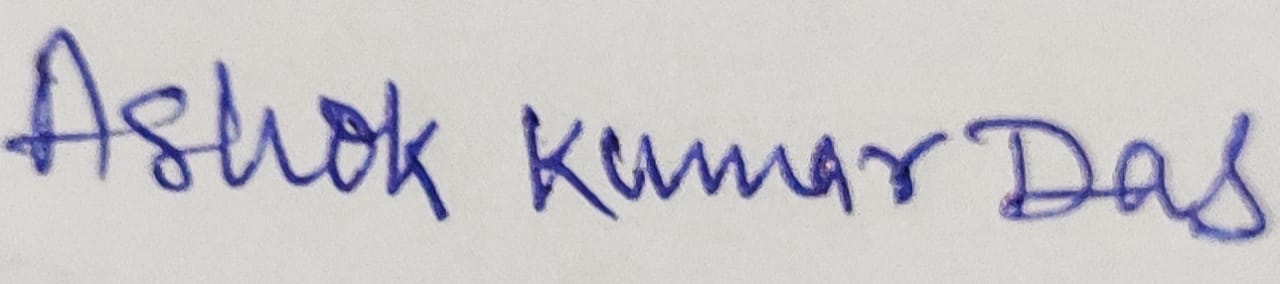 Ashok Kumar Das